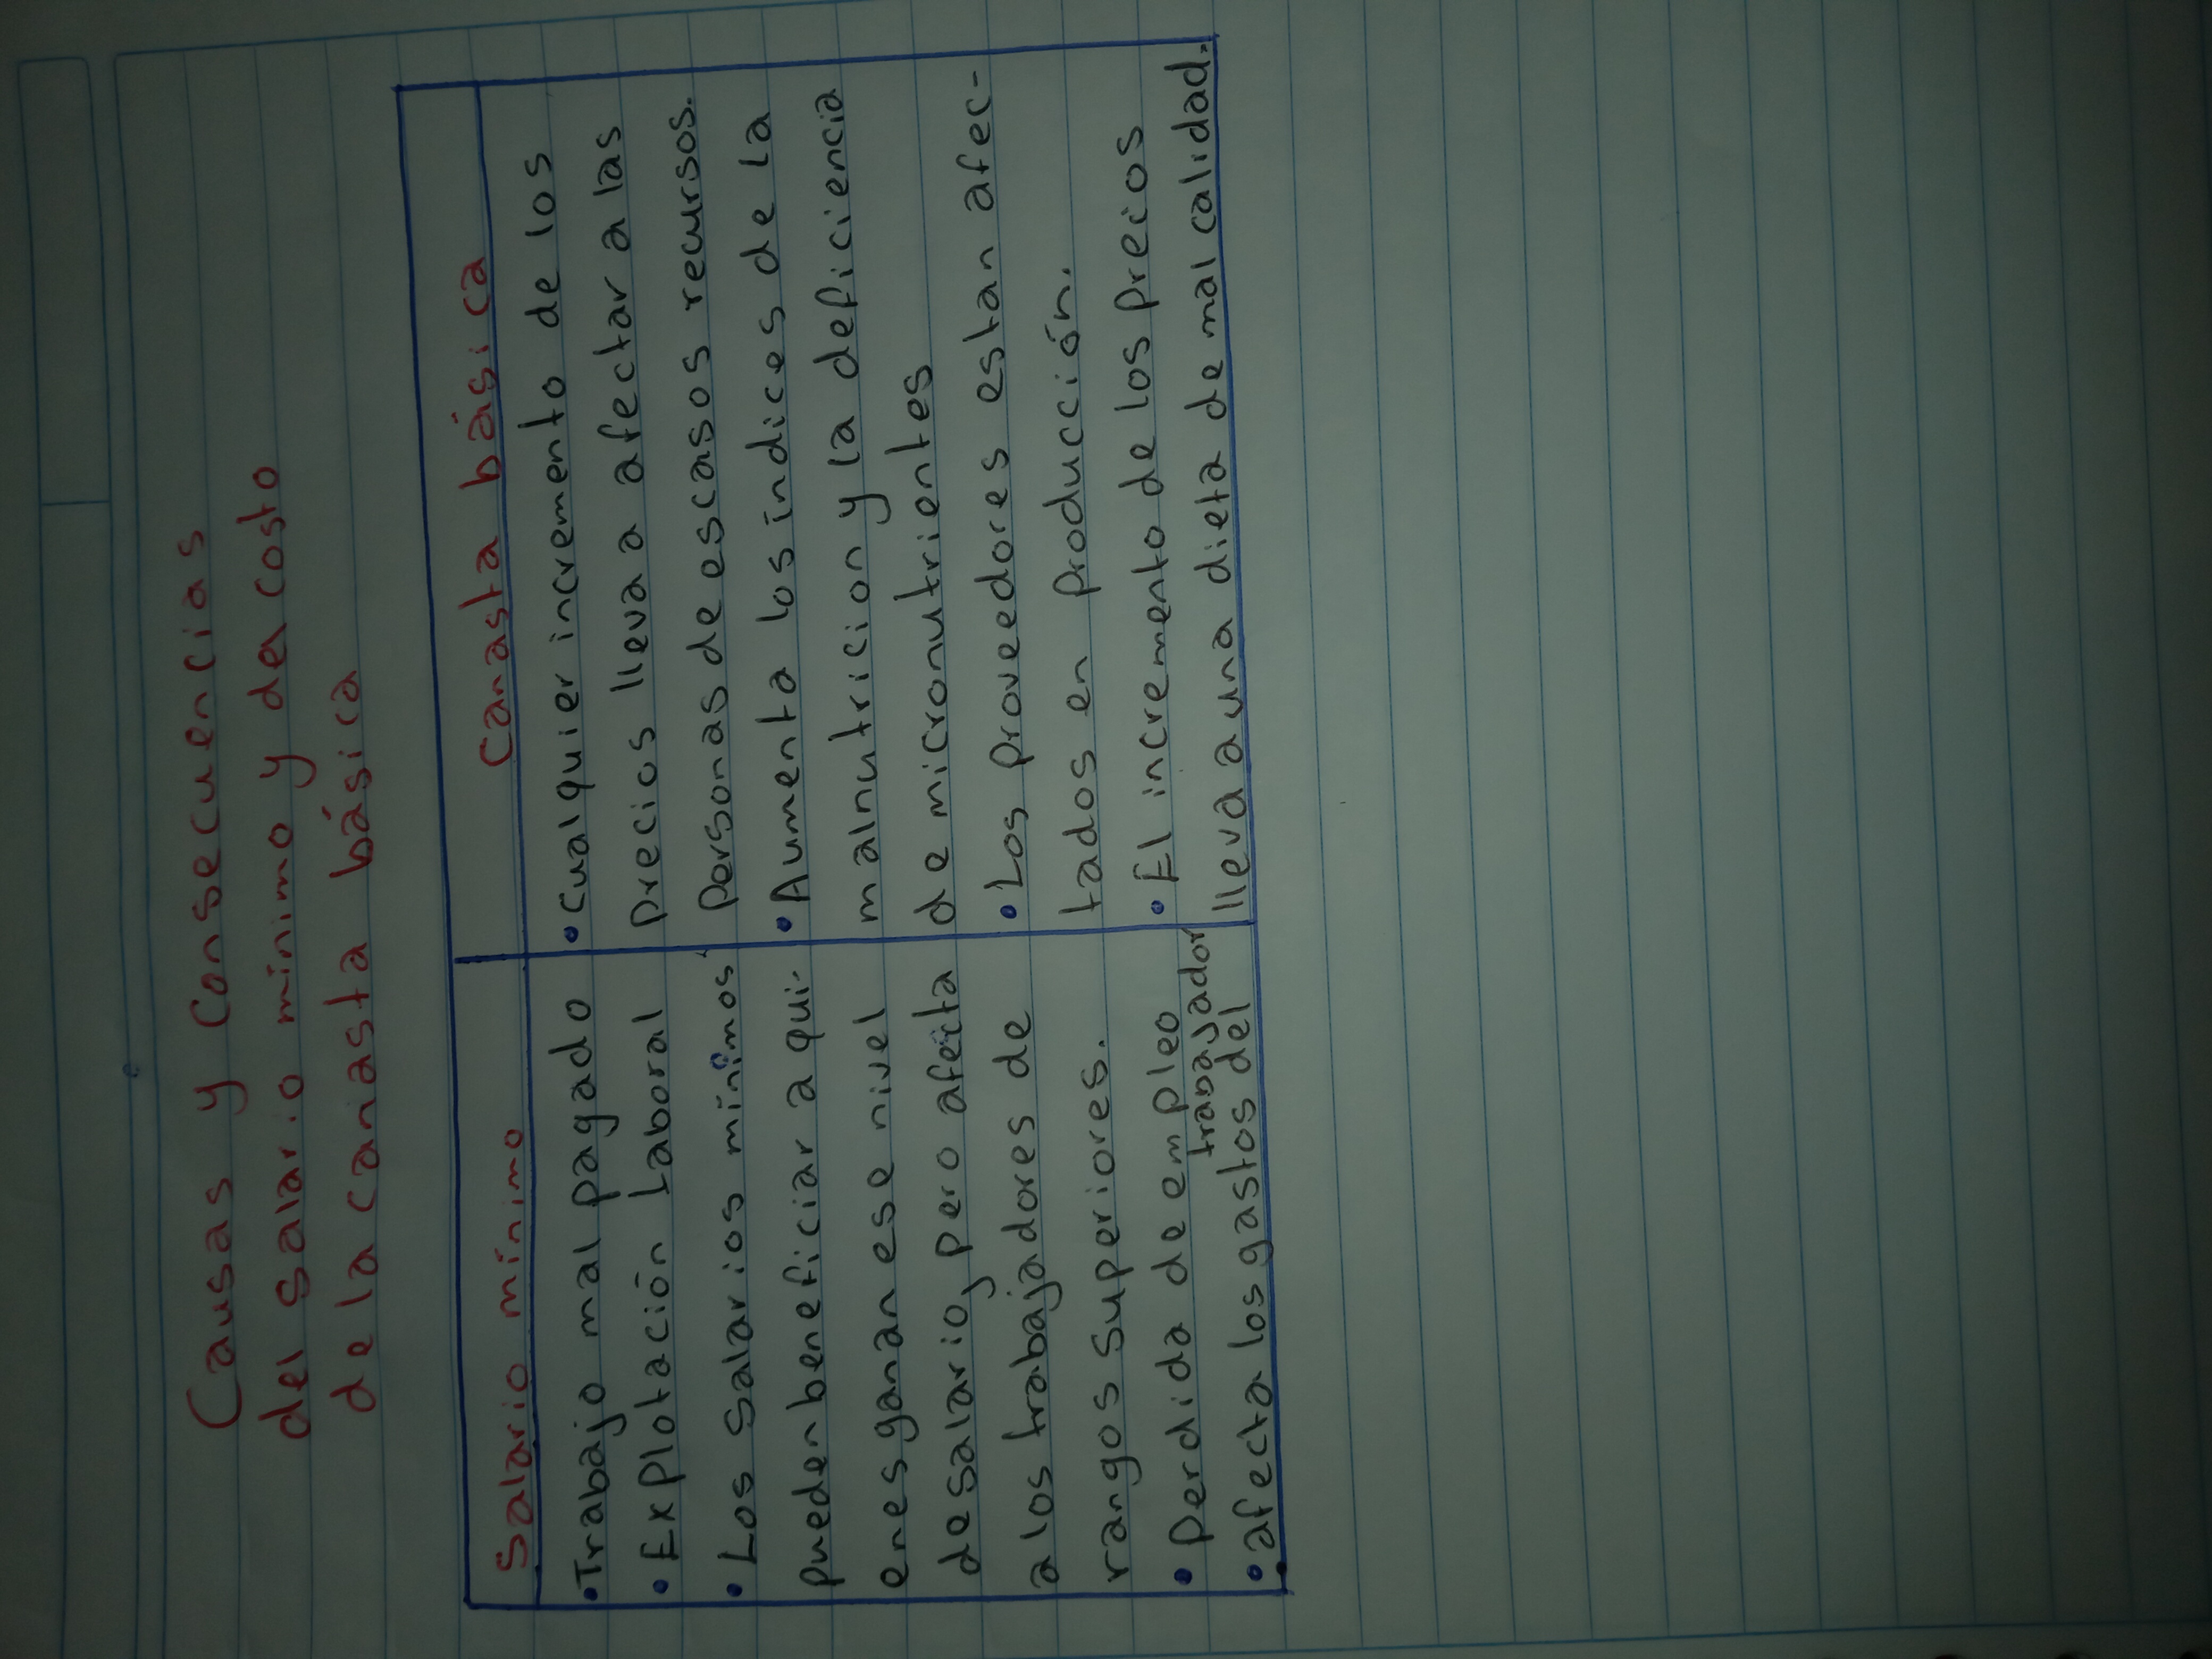 Causas y Consecuencias
del salario mínimo y del costo
de la canasta básica
Salario mínimo
•Trabajo mal pagado
• Explotación Laboral
• Los salarios mínimos
pueden beneficiar a qui-
enes ganan ese nivel
de salario, pero afecta
a los trabajadores de
rangos superiores.
• perdida de empleo
• afecta los gastos del
trabajador
Canasta básica
• cualquier incremento de los
precios lleva a afectar a las
personas de escasos recursos.
• Aumenta los índices de la
malnutricion y la deficiencia
de micronutrientes
• Los proveedores estan afec-
tados en producción.
• El incremento de los precios
lleva a una dieta de mal calidad.